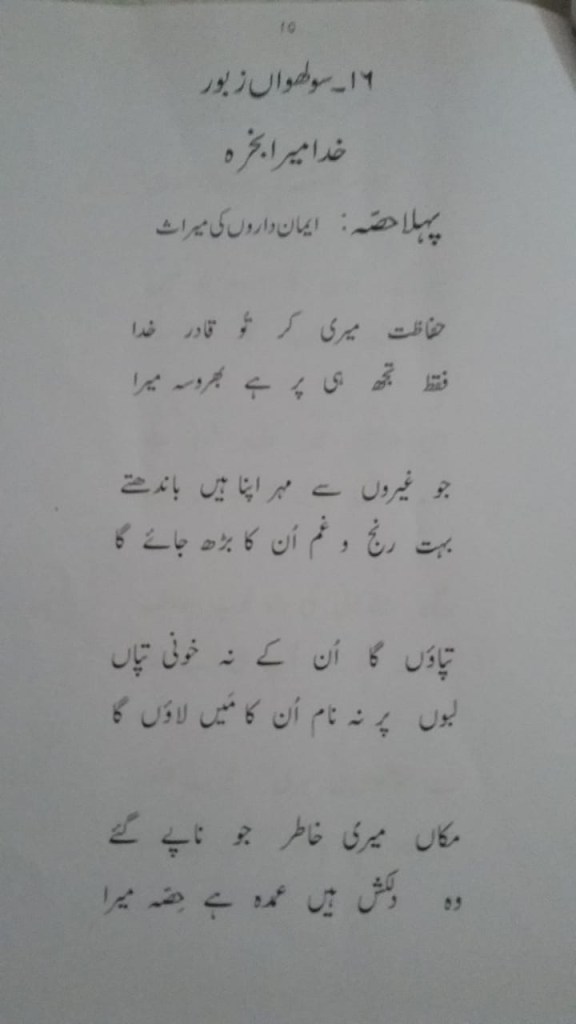 ۱۵
۱۶۔سولھواں زبور
خدا میرا بخرہ
پہلا حصّہ: ایمان داروں کی میراث
حفاظت میری کر تُو قادر خدا
فقط تجھ ہی پر ہے بھروسہ میرا
جو غیروں سے مہر اپنا ہیں باندھتے
بہت رنج و غم اُن کا بڑھ جائے گا
تپاؤں گا اُن کے نہ خونی تپاں
لبوں پر نہ نام اُن کا مَیں لاؤں گا
مکاں میری خاطر جو ناپے گئے
وہ دلکش ہیں عمدہ ہے حِصّہ میرا